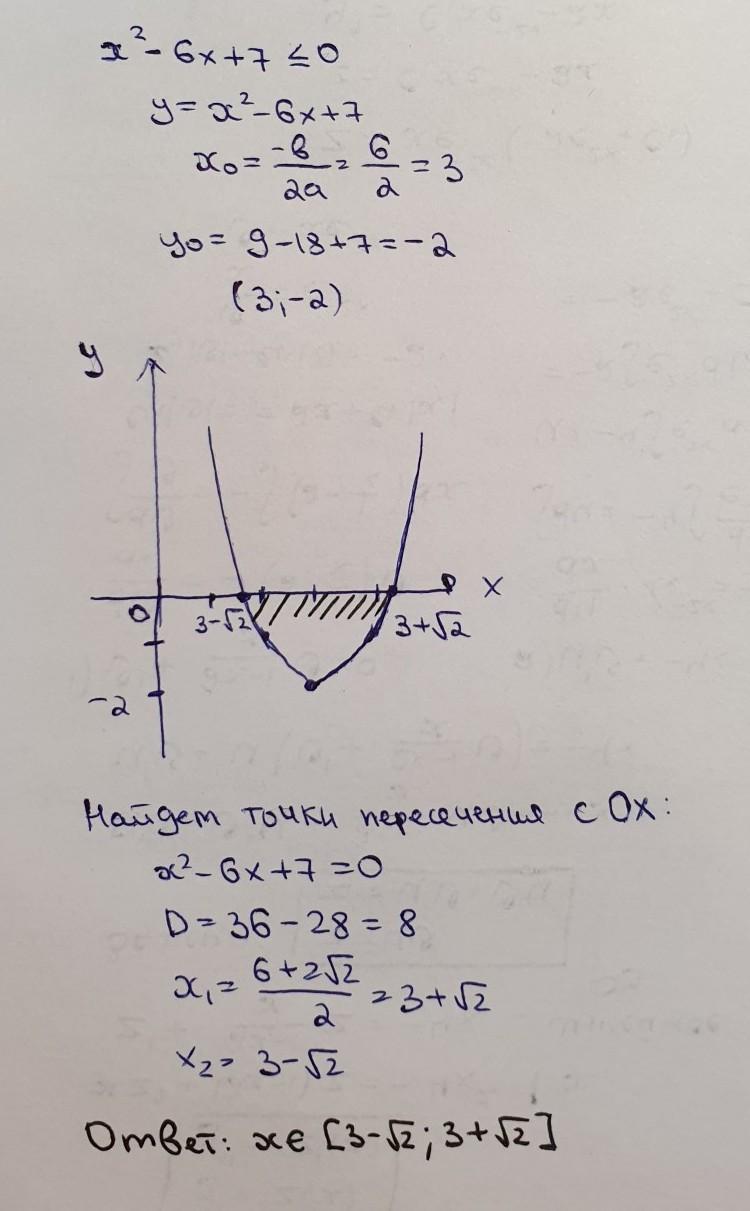 x² - 6x + 7 ≤ 0
y = x² - 6x + 7
x₀ = -b/2a = 6/2 = 3
y₀ = 9 - 18 + 7 = -2
(3; -2)
y
0 3-√2 3+√2 x
-2
Найдем точки пересечения с Ox:
x² - 6x + 7 = 0
D = 36 - 28 = 8
x₁ = (6 + 2√2)/2 = 3 + √2
x₂ = 3 - √2
Ответ: x ∈ [3-√2; 3+√2]